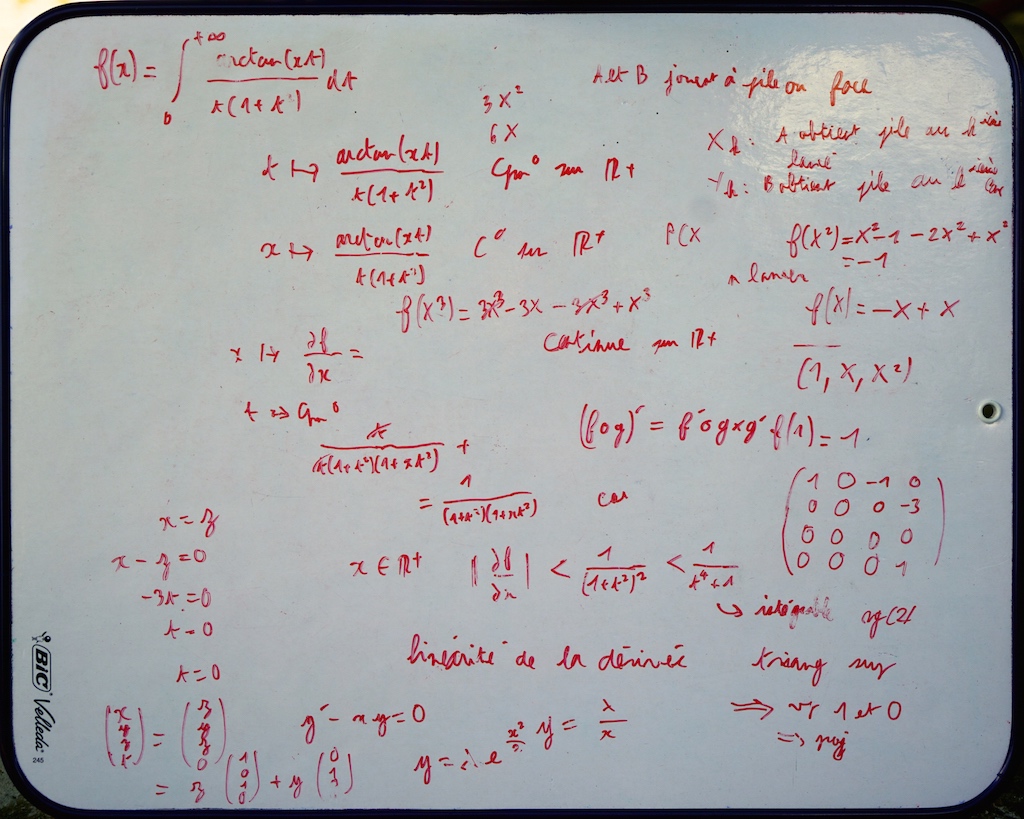 f(x) = ∫₀^{+∞} arctan(xt) / t(1+t²) dt
3X²
6X
A et B jouent à pile ou face
X_k : A obtient pile au k ième lancé
Y_k : B obtient pile au k ième
t ↦ arctan(xt) / t(1+t²) Cpm⁰ sur ℝ+
x ↦ arctan(xt) / t(1+t²) C⁰ sur ℝ+
P(X
f(X²) = X² - 1 - 2X² + X²
= -1
n lancer
f(X³) = 3X³ - 3X - 3X³ + X³
f(X) = -X + X
continue sur ℝ+
x ↦ ∂f/∂x =
(1, X, X²)
t ↦ Cpm⁰
t / t(1+t²)(1+xt²) +
(fog)' = f'og×g'
f(1) = -1
= 1 / (1+t²)(1+xt²) car
(1 0 -1 0
0 0 0 -3
0 0 0 0
0 0 0 1)
x = z
x - z = 0
-3t = 0
t = 0
t = 0
x ∈ ℝ+ |∂f/∂x| < 1/(1+t²)² < 1/t⁴+1
↳ intégrable
rg(2)
linéarité de la dérivée
triang sup
⟹ vp 1 et 0
⟹ proj
(x y z t) = (z y z 0)
= z (1 0 1 0) + y (0 1
y' - xy = 0
y = λe^{x²/2}
y = λ/x
BIC Velleda
245